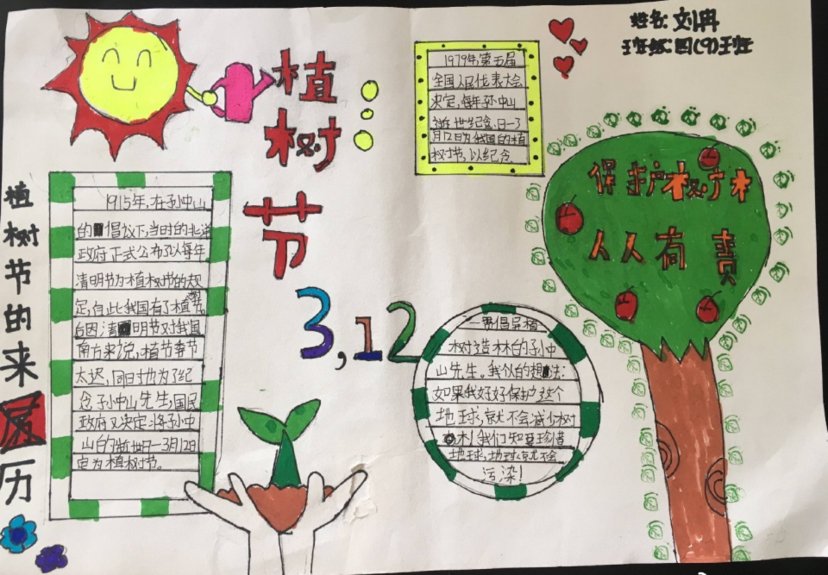 姓名:刘冉
班级:四(9)班
植树节
3,12
1979年,第五届
全国人民代表大会
决定,每年孙中山
月12日为我国的植
树节,以纪念
保护树木
人人有责
植树节的来历
1915年,在孙中山
的倡议下,当时的北洋
政府正式公布了以每年
清明节为植树节的规
定,自此我国有了植树节,
后因清明节对我国
南方来说,植节季节
太迟,同时也为了纪
念孙中山先生,国民
政府又决定将孙中
山的逝世日—3月12日
定为植树节。
一听倡导植
树造林的孙中
山先生。我似的想法:
如果我好好保护这个
地球,就不会减少树
木!我们知要珍惜
地球,地球就不会
污染!